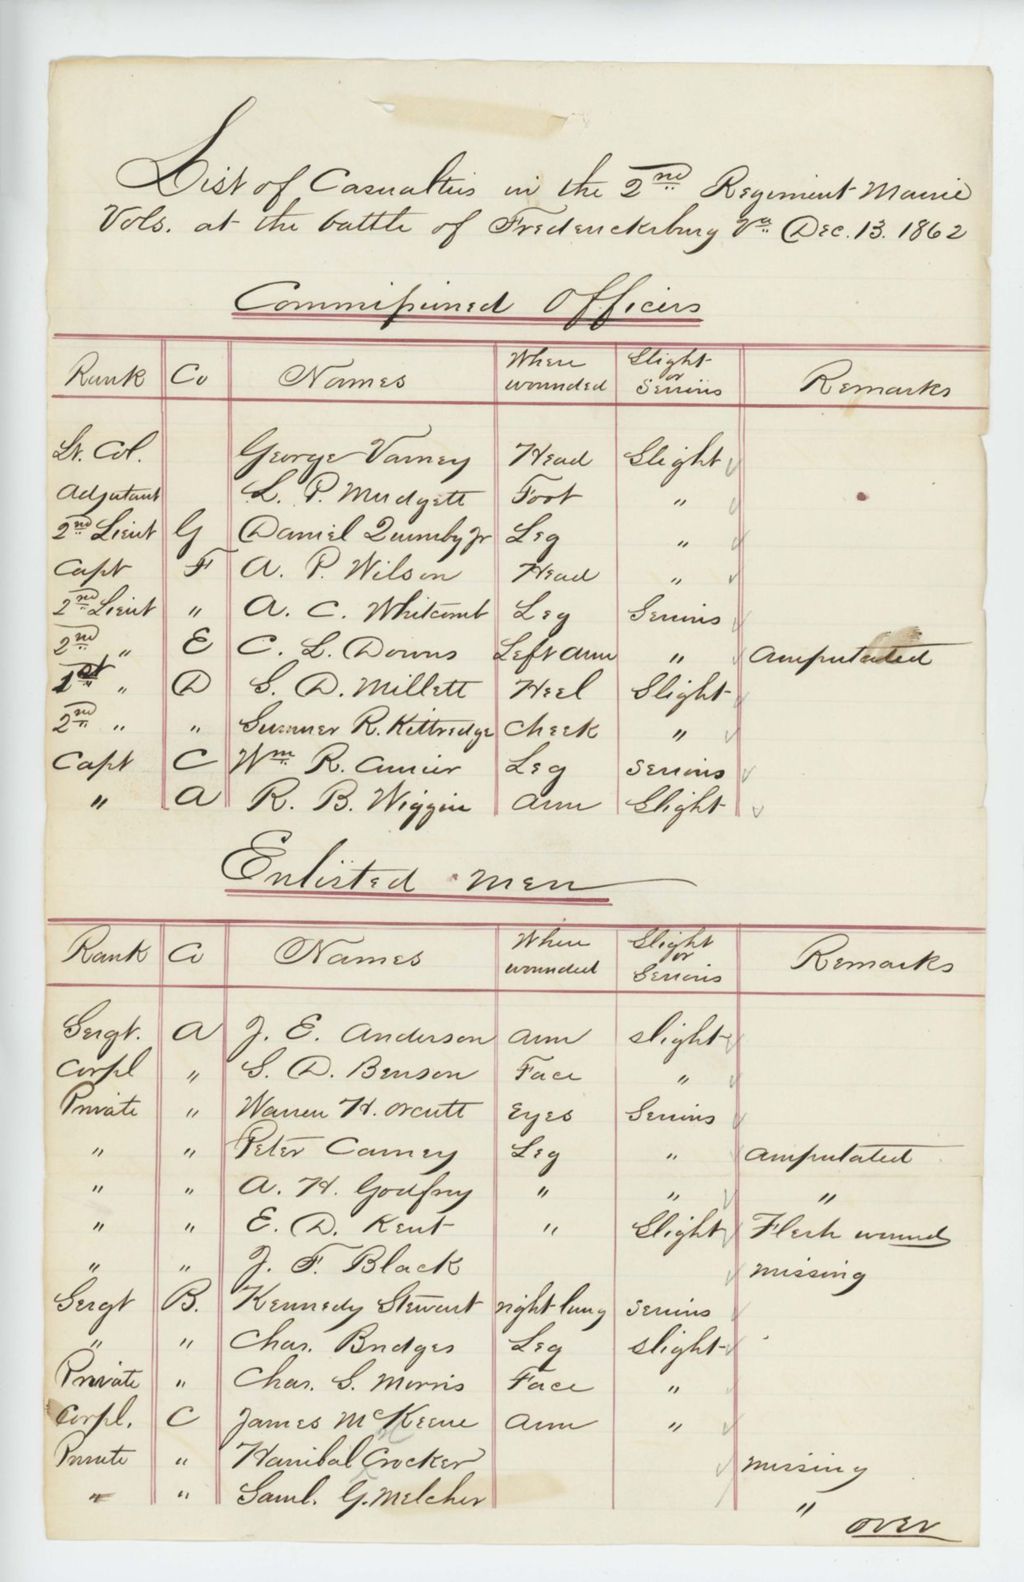 List of Casualties in the 2nd Regiment Maine
Vols. at the battle of Fredericksburg Va. Dec. 13. 1862
Commissioned Officers
Rank Co Names Where wounded Slight or Serious Remarks
Lt. Col. George Varney Head Slight
Adjutant L. P. Mudgett Foot "
2nd Lieut G Daniel Quimby Jr Leg "
Capt F A. P. Wilson Head "
2nd Lieut " A. C. Whitcomb Leg Serious
2nd " E C. L. Downs Left arm " Amputated
1st " D S. D. Millett Heel Slight
2nd " " Sumner R. Kittredge Cheek "
Capt C Wm R. Currier Leg Serious
" A R. B. Wiggin Arm Slight
Enlisted men
Rank Co Names Where wounded Slight or Serious Remarks
Sergt. A J. E. Anderson arm slight
Corpl " S. D. Benson Face "
Private " Warren H. Orcutt Eyes Serious
" " Peter Carney Leg " Amputated
" " A. H. Godfrey " " "
" " E. D. Kent " Slight Flesh wound
" " J. F. Black missing
Sergt B. Kennedy Stewart right lung serious
" " Chas. Bridges Leg slight
Private " Chas. S. Morris Face "
Corpl. C James McKeene arm "
Private " Hanibal Crocker missing
" " Saml. G. Melcher "
over